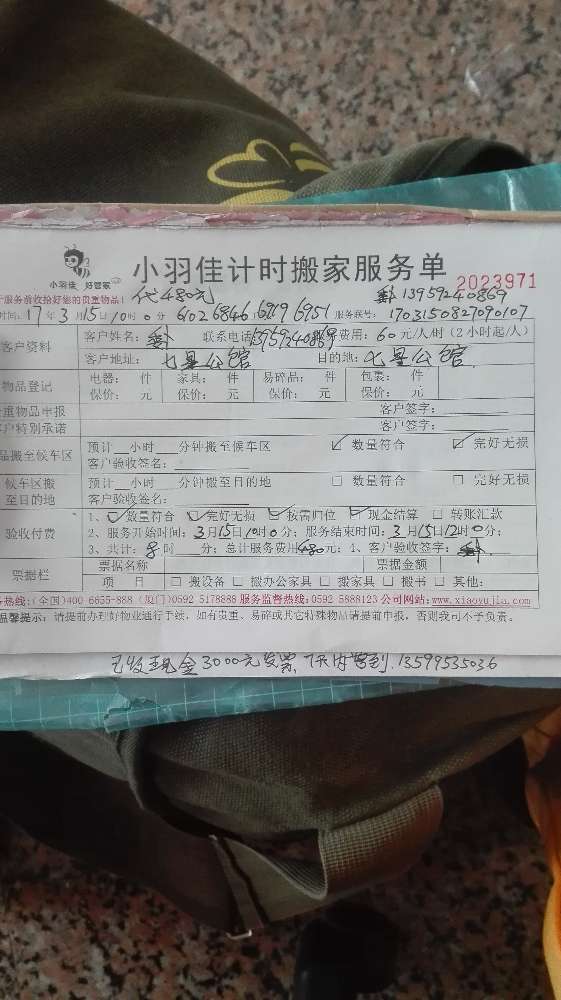 小羽佳 好管家
小羽佳计时搬家服务单
2023971
于服务前收拾好您的贵重物品! 代480元 13959240869
时间: 17年3月15日10时0分 6102 6846 6919 6951 服务联号: 1703150827090107
客户资料
客户姓名: 联系电话 13959240869 服务费用: 60元/人/时 (2小时起/人)
客户地址: 七星公馆 目的地: 七星公馆
物品登记
电器: 件 家具: 件 易碎品: 件 包裹: 件
保价: 元 保价: 元 保价: 元 保价: 元
贵重物品申报 客户签字:
客户特别承诺 客户签字:
物品搬至候车区
预计__小时____分钟搬至候车区 ☑ 数量符合 ☑ 完好无损
客户验收签名:
候车区搬至目的地
预计__小时____分钟搬至目的地 □ 数量符合 □ 完好无损
客户验收签名:
验收付费
1、☑数量符合 ☑完好无损 ☑按需归位 ☑现金结算 □ 转账汇款
2、服务开始时间: 3月15日10时0分; 服务结束时间: 3月15日12时0分;
3、共计: 8时____分; 总计服务费用480元; 1、客户验收签字:
票据栏
票据名称 票据金额
项 目 □ 搬设备 □ 搬办公家具 □ 搬家具 □ 搬书 □ 其他:
务热线: (全国)400 6655-888 (厦门)0592 5178888 服务监督热线: 0592 5888123 公司网站: www.xiaoyujia.com
温馨提示: 请提前办理好物业通行手续, 如有贵重、易碎或其它特殊物品请提前申报, 否则我司不予负责。
已收现金3000元发票 7天内寄到 13599535036